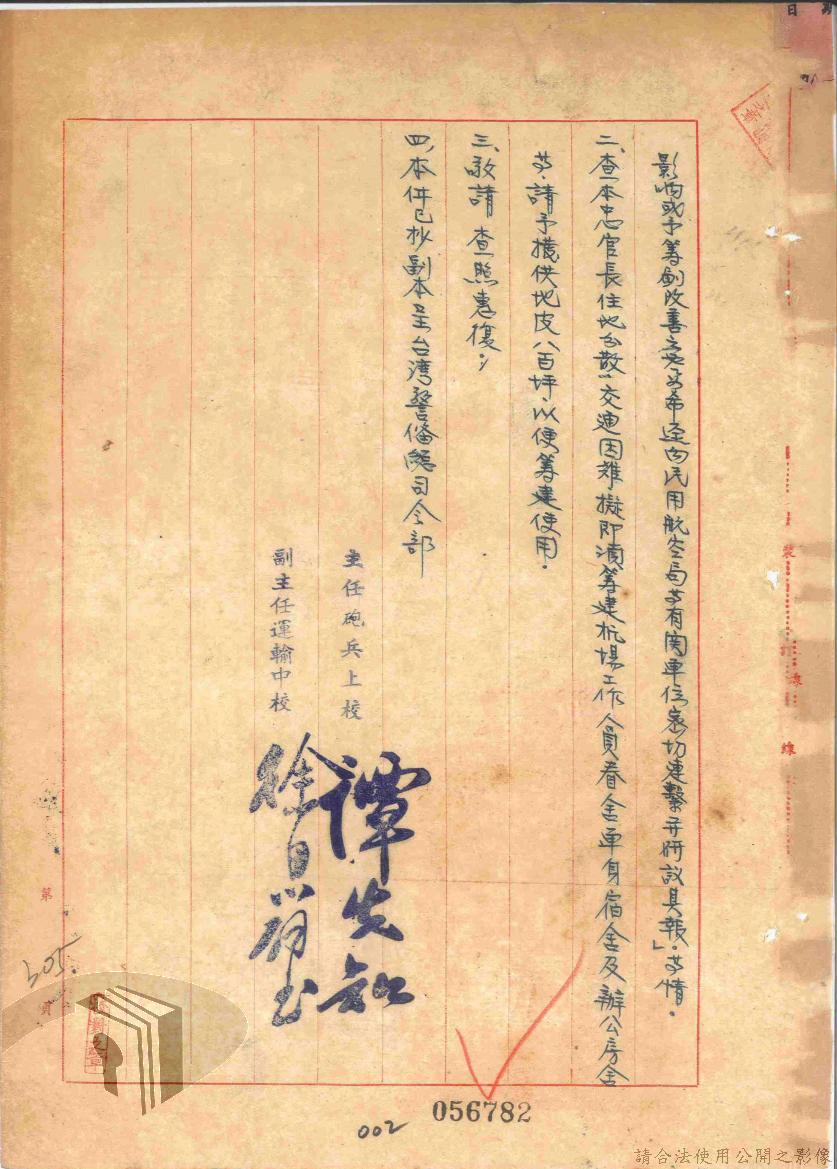 影响或予筹劃改善之處希逕向民用航空局等有関单位密切連繫并研議具報。」等情。
二、查本忠官長住地分散、交通困难擬即須筹建机場工作人員眷舍单身宿舍及辦公房舍
等、請予撥供地皮八百坪以便筹建使用。
三、敬請 查照惠復；
四、本件已抄副本呈台湾警偹總司令部
主任砲兵上校
譚先知
副主任運輸中校
徐日
裝
訂
線
第
頁
505
056782
002
請合法使用公開之影像